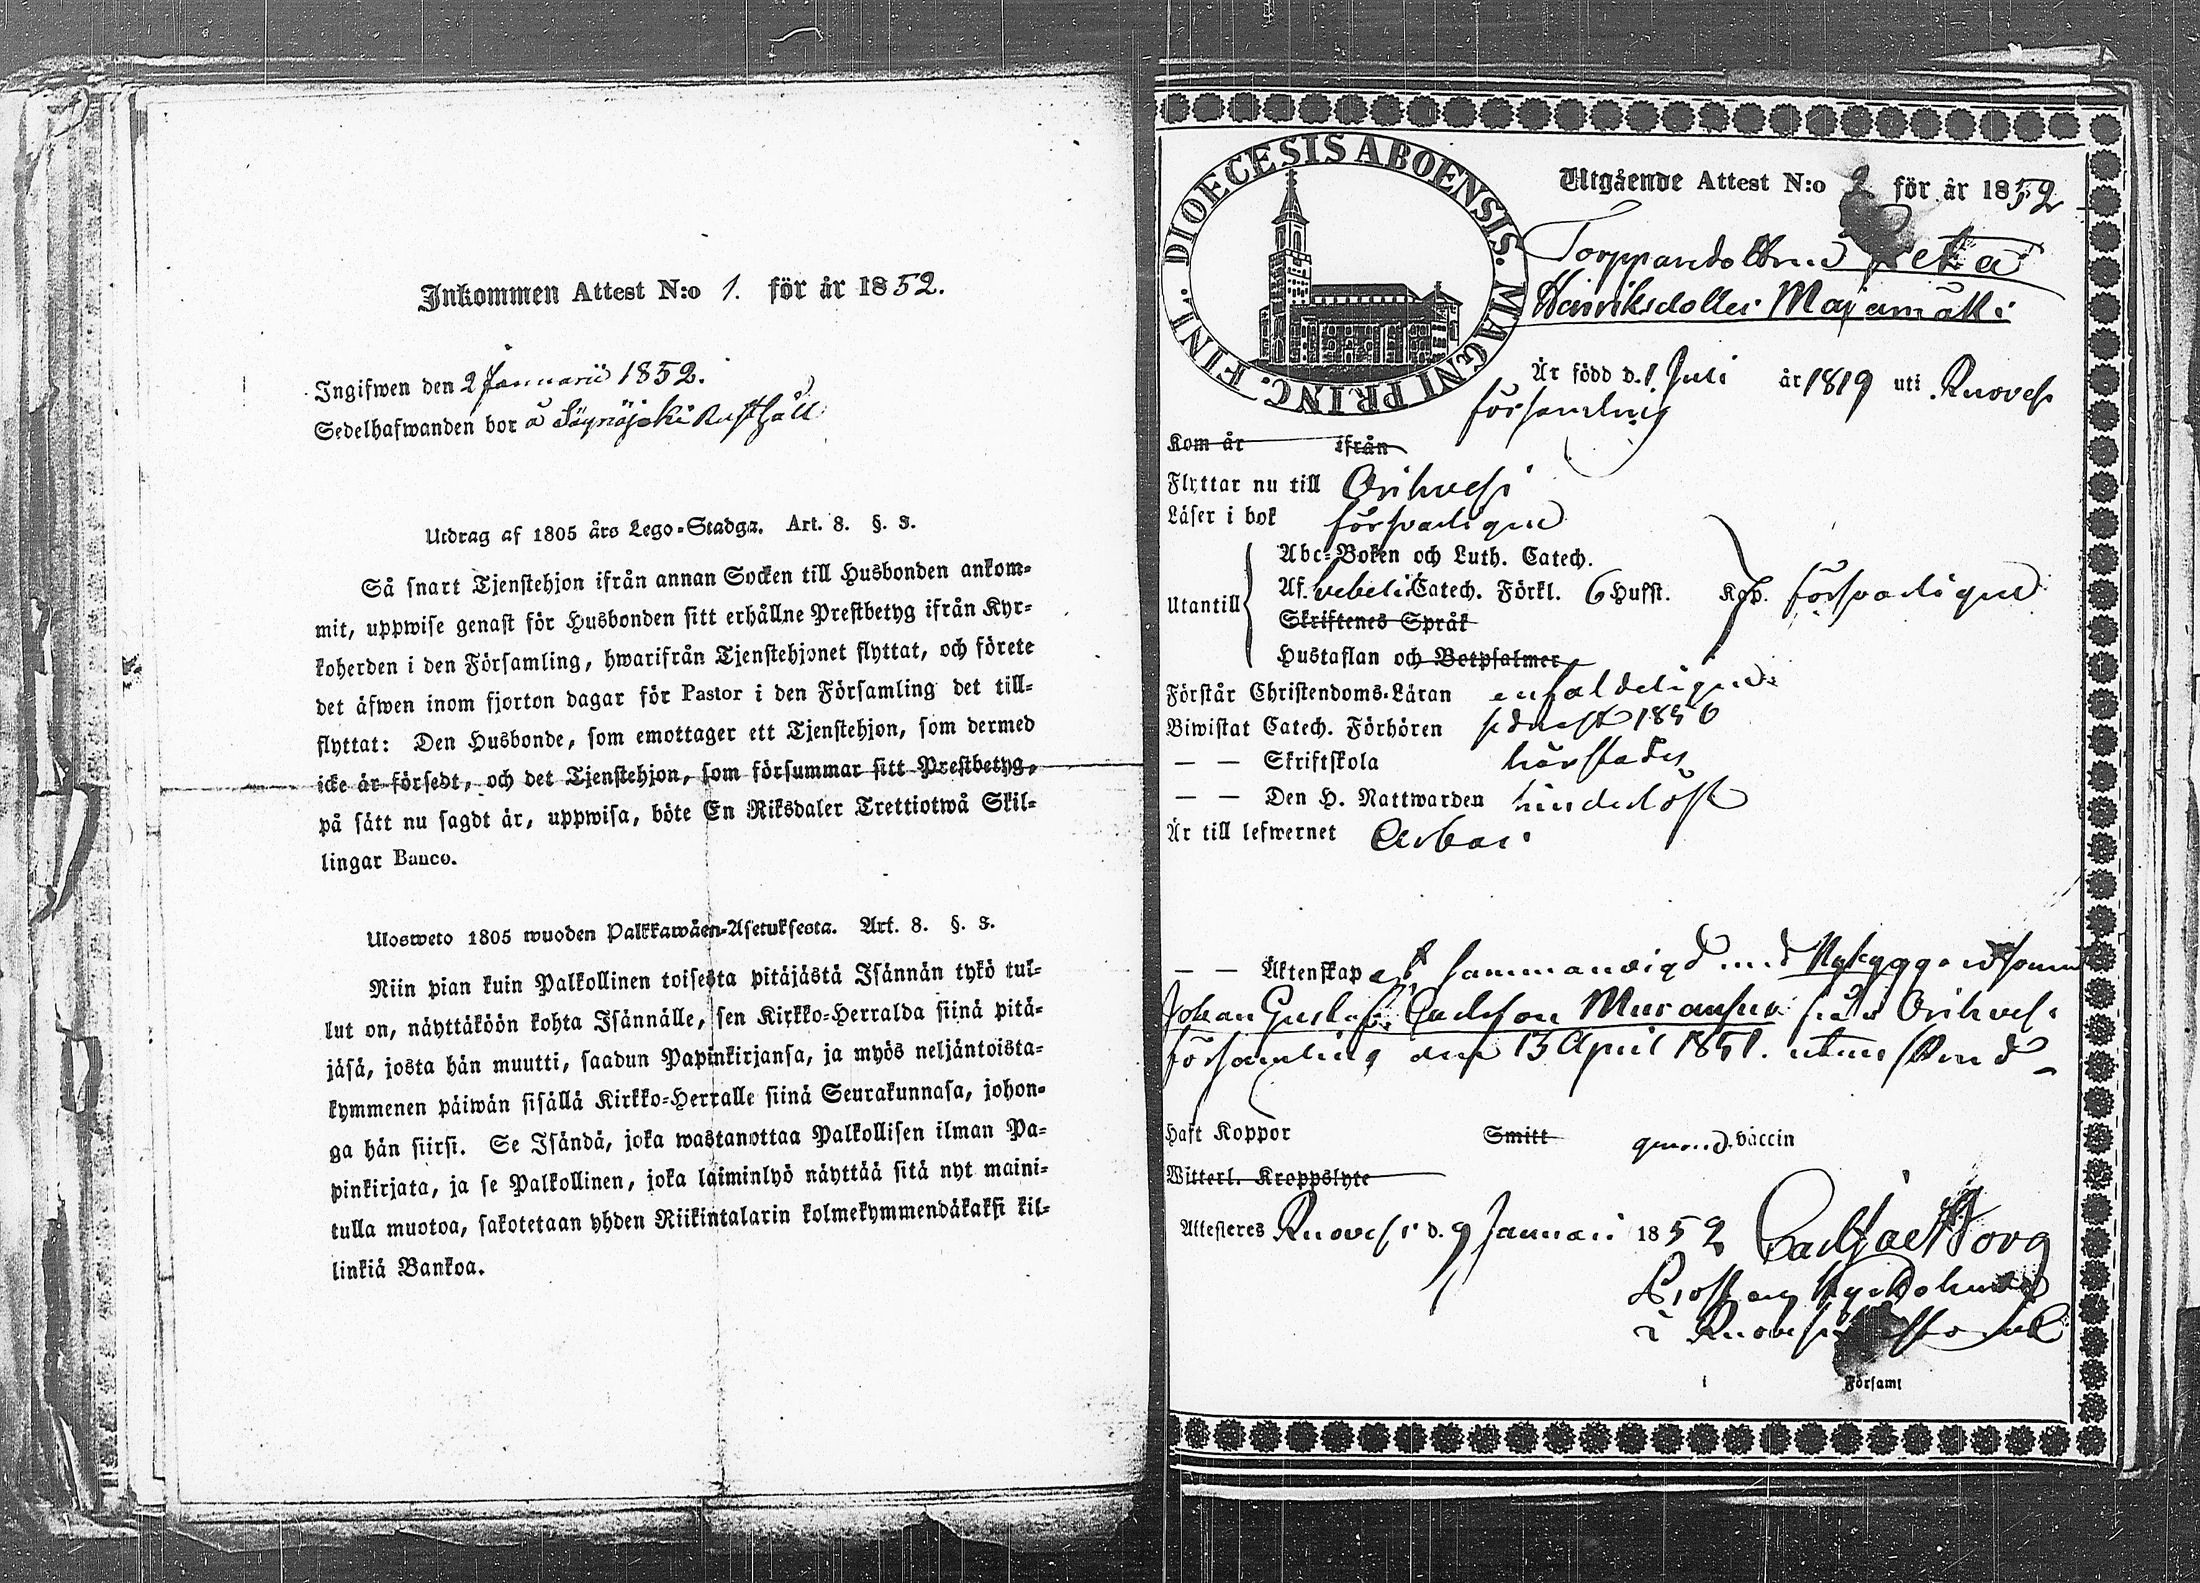 Inkommen Attest N:o 1. för år 1852.
Ingifwen den 2 Januarii 1852.
Sedelhafwanden bor å Säynäjoki Rusthåll
Utdrag af 1805 års Lego-Stadga. Art. 8. §. 3.
Så snart Tjenstehjon ifrån annan Socken till Husbonden ankom-
mit, uppwise genast för Husbonden sitt erhållne Prestbetyg ifrån Kyr-
koherden i den Församling, hwarifrån Tjenstehjonet flyttat, och förete
det äfwen inom fjorton dagar för Pastor i den Församling det till-
flyttat: Den Husbonde, som emottager ett Tjenstehjon, som dermed
icke är försedt, och det Tjenstehjon, som försummar sitt Prestbetyg,
på sätt nu sagdt är, uppwisa, böte En Riksdaler Trettiotwå Skil-
lingar Banco.
Ulosweto 1805 wuoden Palkkawäen-Asetuksesta. Art. 8. §. 3.
Niin pian kuin Palkollinen toisesta pitäjästä Isännän tykö tul-
lut on, näyttäköön kohta Isännälle, sen Kirkko-Herralda siinä pitä-
jäsä, josta hän muutti, saadun Papinkirjansa, ja myös neljäntoista-
kymmenen päiwän sisällä Kirkko-Herralle siinä Seurakunnasa, johon-
ga hän siirsi. Se Isändä, joka wastanottaa Palkollisen ilman Pa-
pinkirjata, ja se Palkollinen, joka laiminlyö näyttää sitä nyt maini-
tulla muotoa, sakotetaan yhden Riikintalarin kolmekymmendäkaksi kil-
linkiä Bankoa.
DIOECESIS ABOENSIS. MAGNI PRINC. FINL.
Utgående Attest N:o 2 för år 1852
Torppardottren Greta
Henriksdotter Majamäki
Är född d. 1 Juli år 1819 uti Ruovesi
församling
Kom år ifrån
Flyttar nu till Orihvesi
Läser i bok försvarligen
Utantill
Abc-Boken och Luth. Catech.
Af. Svebelii Catech. Förkl. 6 Hufst. Kap. försvarligen
Skriftenes Språk
Hustaflan och Botpsalmer
Förstår Christendoms-Läran enfaldeligen
Biwistat Catech. Förhören sednast 1850
— — Skriftskola härstädes
— — Den H. Nattwarden hinderlöst
Är till lefwernet Ärbar
— — Äktenskap sammanvigd med
Johan Gustaf Carlsson Muransuu från Orihvesi
församling den 13 April 1851. utan
Haft Koppor Smitt genom vaccin
Witterl. Kroppslyte
Attesteres Ruovesi d. 9 Januari 1852
Prost och Kyrkoherde
i Ruovesi
i Församl